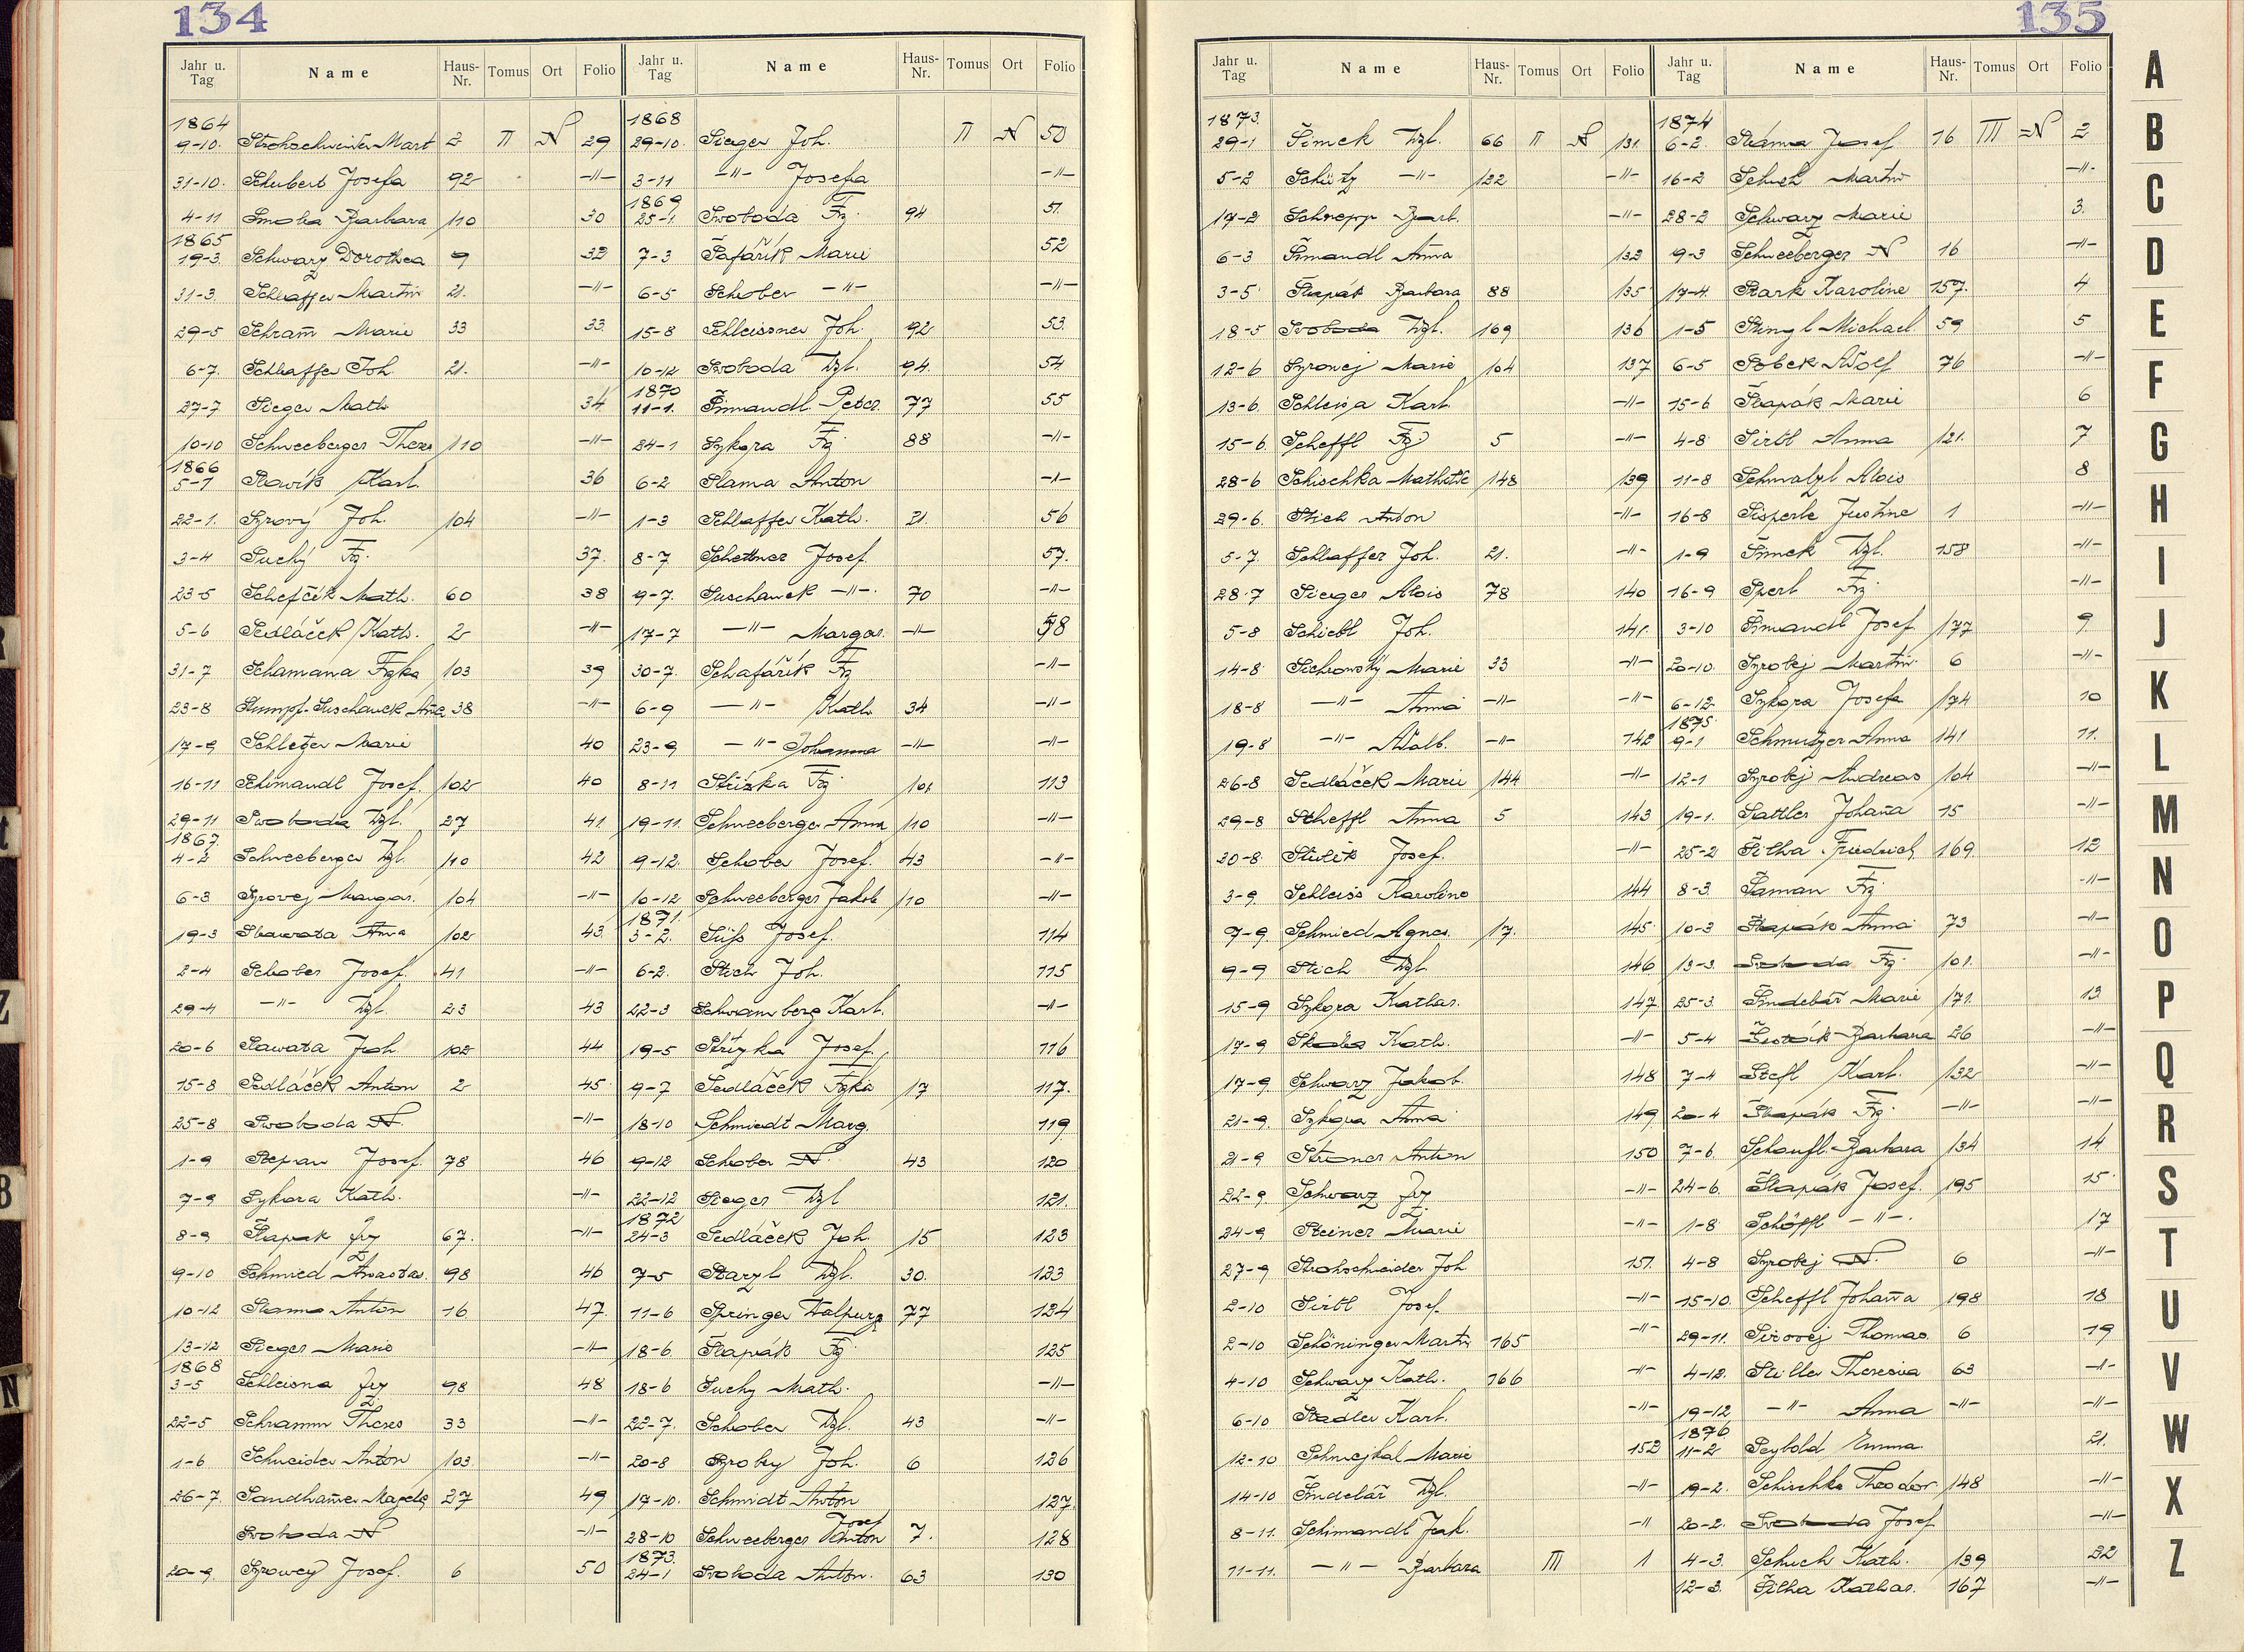 134
Jahr u. Tag Name Haus-Nr. Tomus Ort Folio
1864
9-10. Strohschneider Mart 2 II N 29
31-10. Schubert Josefa 92 -"-
4-11 Smola Barbara 110 30
1865
19-3. Schwarz Dorothea 9 32
31-3. Schlaffer Martin 21. -"-
29-5 Schram̄ Marie 33 33.
6-7. Schlaffer Joh. 21. -"-
27-7 Sieger Math 34.
10-10 Schneeberger Theres 110 -"-
1866
5-1 Slavík Karl. 36
22-1. Syrový Joh. 104 -"-
3-4 Suchý Fz. 37.
23-5 Schefčík Math. 60 38
5-6 Sedláček Kath. 2 -"-
31-7 Schamana Fzka 103 39
23-8 Stumpf-Suschanek Ana 38 -"-
17-9 Schletzer Marie 40
16-11 Schimandl Josef. 102 40
29-11 Swoboda Wzl. 27 41.
1867.
4-2 Schneeberger Wzl. 110 42
6-3 Syrovej Margar. 104 -"-
19-3 Slawata Anna 102 43.
2-4 Schober Josef. 41 -"-
29-4 -"- Wzl. 23 43
20-6 Slawata Joh. 102 44
15-8 Sedláček Anton 2 45
25-8 Swoboda N. -"-
1-9 Stepan Josef. 78 46
7-9 Sykora Kath. -"-
8-9 Šlapak Frz 67. -"-
9-10 Schmied Anastas. 98 46
10-12 Slama Anton 16 47.
13-12 Sieger Marie -"-
1868
3-5 Schleisna Frz 98 48
22-5 Schramm Theres 33 -"-
1-6 Schneider Anton 103 -"-
26-7 Sandham̄er Magda 27 49
Swoboda N -"-
20-9. Syrowey Josef. 6 50
Jahr u. Tag Name Haus-Nr. Tomus Ort Folio
1868
29-10. Sieger Joh. II N 50
3-11 -"- Josefa -"-
1869
25-1. Swoboda Fz. 94 51.
7-3 Šafářík Marie 52
6-5 Schober -"- -"-
15-8 Schleissner Joh. 92 53.
10-12 Swoboda Wzl. 94. 54
1870
11-1. Šimandl Peter. 77 55
24-1 Sykora Fz. 88 -"-
6-2 Slama Anton -"-
1-3 Schlaffer Kath. 21. 56
8-7 Schettner Josef. 57.
9-7. Suschanek -"-. 70 -"-
17-7 -"- Margar. -"- 58
30-7. Schafářík Fz -"-
6-9 -"- Kath 34 -"-
23-9 -"- Johanna -"- -"-
8-11 Střízka Fz 101 113
19-11. Schneeberger Anna 110 -"-
9-12. Schober Josef. 43 -"-
10-12 Schneeberger Jakob 110 -"-
1871.
3-2. Süss Josef. 114
6-2. Stich Joh. 115
22-3 Schwamberg Karl. -"-
19-5 Střízka Josef. 116
9-7 Sedláček Fzka 17 117.
18-10 Schmiedt Marg. 119
9-12 Schober N. 43 120
22-12 Sieger Wzl 121.
1872
24-3 Sedláček Joh. 15 123
7-5 Starzl Wzl. 30. 123
11-6 Springer Walpurg 77 124
18-6. Šlapák Fz 125
18-6 Suchy Math. -"-
22-7. Schober Wzl. 43 -"-
20-8 Syrobey Joh. 6 126
17-10. Schmidt Anton 127.
28-10 Schneeberger Anton Josef 7. 128
1873.
24-1 Swoboda Anton. 63 130
135
Jahr u. Tag Name Haus-Nr. Tomus Ort Folio
1873.
29-1 Šimek Wzl. 66 II N 131.
5-2 Schütz -"- 122 -"-
17-2 Schrepp Barb. -"-
6-3 Šimandl Anna 132
3-5 Šlapák Barbara 88 135
18-5 Swoboda Wzl. 169 136
12-6 Syrovej Marie 104 137
13-6. Schleisa Karl -"-
15-6. Scheffl Fz. 5 -"-
28-6 Schischka Mathilde 148 139
29-6. Stich Anton -"-
5-7. Schlaffer Joh. 21. -"-
28-7 Sieger Alois 78 140
5-8 Schiebl Joh. 141.
14-8 Sichrowský Marie 33 -"-
18-8 -"- Anna -"- -"-
19-8 -"- Adalb. -"- 142
26-8 Sedláček Marie 144 -"-
29-8 Scheffl Anna 5 143
30-8 Stulík Josef. -"-
3-9. Schleiss Karoline 144
7-9. Schmied Agnes. 17. 145
9-9 Stich Wzl. 146
15-9 Sykora Kathar. 147.
17-9 Skala Kath. -"-
17-9. Schwarz Jakob. 148
21-9. Sykora Anna 149.
21-9 Steiner Anton 150
22-9. Schwarz Frz. -"-
24-9 Steiner Marie -"-
27-9 Strohschneider Joh 151.
2-10 Sirbl Josef. -"-
2-10 Schöninger Martin 165 -"-
4-10 Schwarz Kath. 166 -"-
6-10 Stadler Karl. -"-
12-10 Schmejkal Marie 152
14-10 Šindelář Wzl. -"-
8-11. Schimandl Jak. -"
11-11. -"- Barbara III 1
Jahr u. Tag Name Haus-Nr. Tomus Ort Folio
1874
6-2. Slama Josef 16 III N 2
16-2 Schuh Martin -"-
28-2 Schwarz Marie 3.
9-3 Schneeberger N 16 -"-
17-4. Stark Karoline 157. 4
1-5 Stingl Michael 59 5
6-5 Sobek Adolf 76 -"-
15-6 Šlapák Marie 6
4-8 Sirbl Anna 121. 7
11-8 Schmalzl Alois 8
16-8 Sisperle Justine 1 -"-
1-9 Šimek Wzl. 158 -"-
16-9 Sperl Fz. -"-
3-10 Šimandl Josef 177 9
20-10. Syrobej Martin 6 -"-
6-12 Sykora Josefa 174 10
1875.
9-1 Schmutzer Anna 141 11.
12-1 Syrobej Andreas 104 -"-
19-1. Sattler Johan̄a 15 -"-
25-2 Šilha Friedrich 169 12
8-3. Šaman Fz. -"-
10-3 Šlapák Anna 73 -"-
13-3. Swoboda Fz. 101. -"-
25-3. Šindelář Marie 171. 13.
5-4 Šesták Barbara 26 -"-
7-4 Stefl Karl. 132 -"-
20-4 Šlapák Fz. -"- -"-
7-6. Schaufl Barbara 134 14
24-6. Šlapák Josef. 195 15
1-8 Schöffl -"-. 17
4-8 Syrobej N. 6 -"-
15-10. Scheffl Johan̄a 198 18
29-11. Sirovej Thomas. 6 19
4-12. Stiller Theresia 63 -"-
19-12 -"- Anna -"- -"-
1876
11-2 Seybold Emma. 21.
19-2. Schischka Theodor 148 -"-
20-2. Swoboda Josef -"-
4-3. Schuch Kath. 139 22
12-3. Šilha Kathar. 167 -"-
A
B
C
D
E
F
G
H
I
J
K
L
M
N
O
P
Q
R
S
T
U
V
W
X
Z